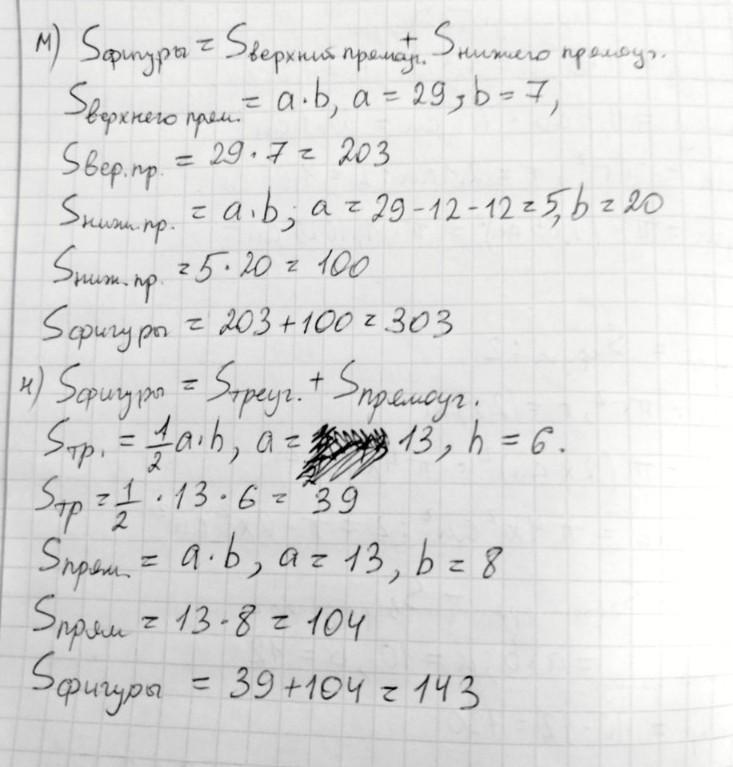 м) Sфигуры = Sверхний прямоуг. + Sнижнего прямоуг.
Sверхнего прям. = a·b, a = 29; b = 7,
Sвер.пр. = 29·7 = 203
Sниж.пр. = a·b; a = 29-12-12=5, b = 20
Sниж.пр = 5·20 = 100
Sфигуры = 203+100=303
н) Sфигуры = Sтреуг. + Sпрямоуг.
Sтр. = 1/2 a·h, a = 13, h = 6.
Sтр = 1/2 · 13 · 6 = 39
Sпрям. = a·b, a = 13, b = 8
Sпрям = 13·8 = 104
Sфигуры = 39+104=143